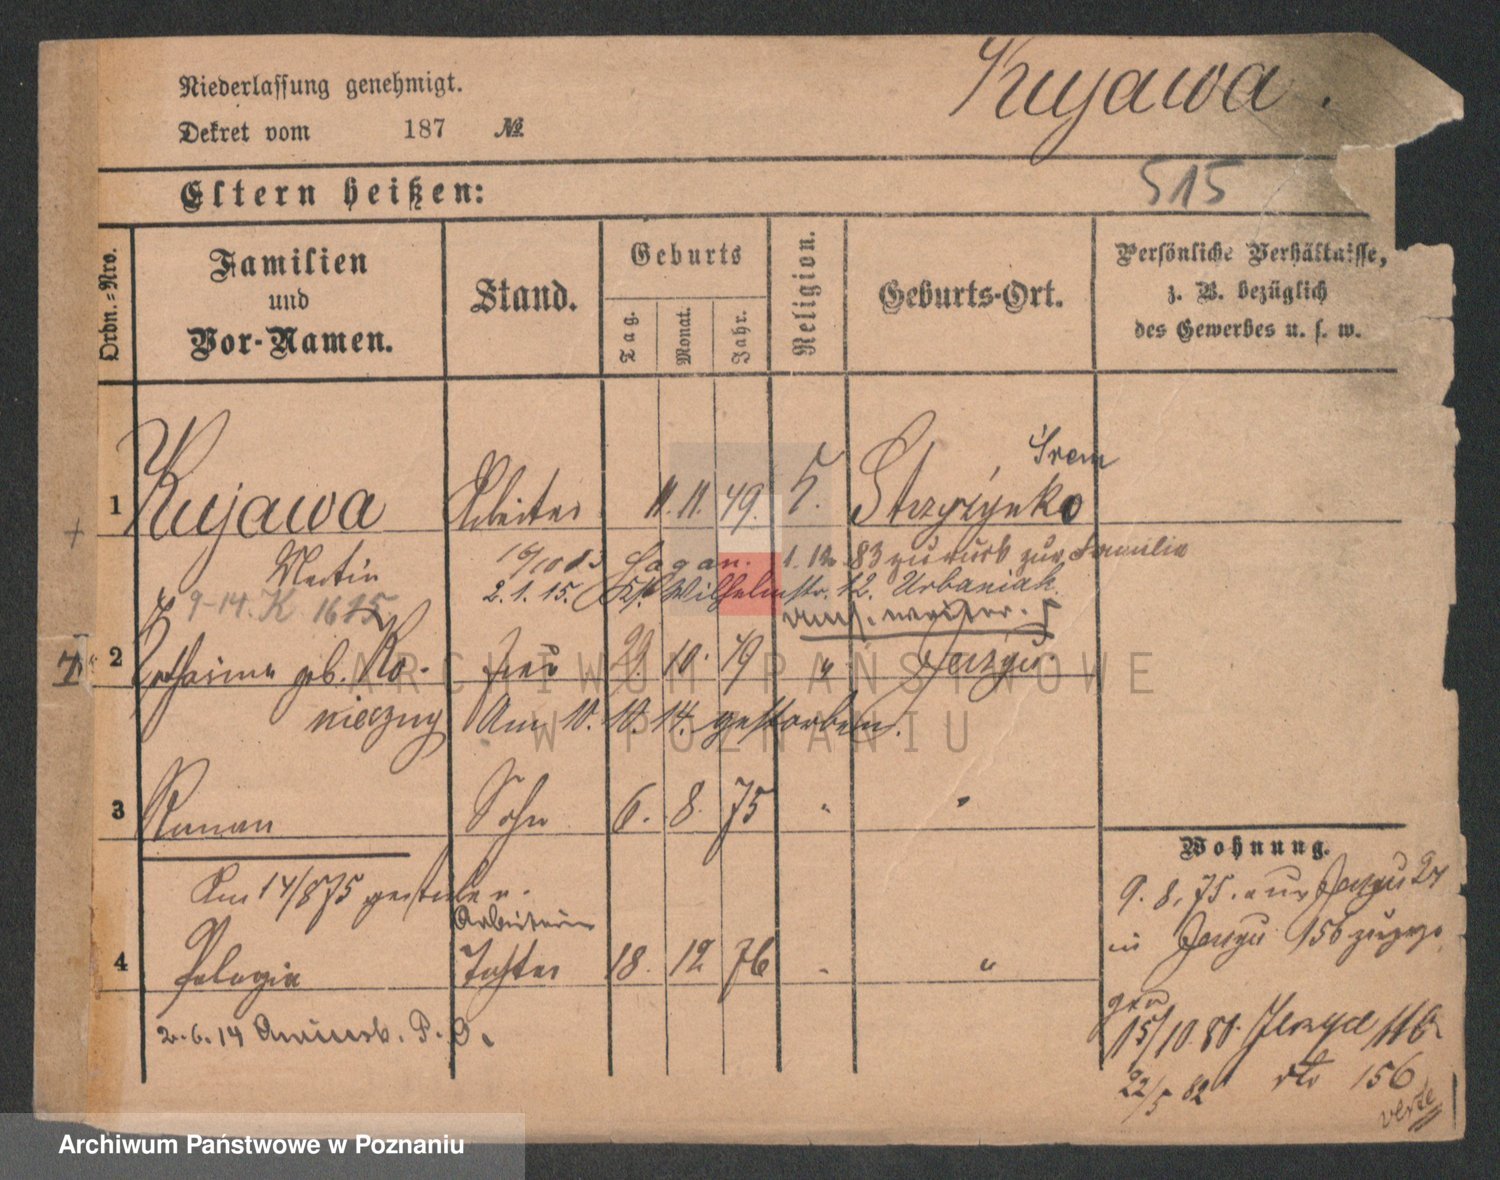 Niederlassung genehmigt.
Kujawa.
Dekret vom 187 №
515
Eltern heißen:
Ordn.-Nro.
Familien und Vor-Namen.
Stand.
Geburts
Tag.
Monat.
Jahr.
Religion.
Geburts-Ort.
Persönliche Verhältnisse,
z. B. bezüglich
des Gewerbes u. s. w.
Śrem
1 Kujawa Arbeiter 11. 11. 49. Strzyżynko
Martin Hagan. 1. 12. 83 zurück zur Familie
9-14. K 1615 2. 1. 15. Wilhelmstr. 12. Urbaniak
2 Katharina geb. Ko- Frau 10. 49 " Jerzyce
nieczny Am 10. 10. 14. gestorben.
3 Roman Sohn 6. 8. 75 " "
Wohnung.
Am 14/8 75 gestorben.
9. 8. 75. aus Jerzyce 27
Arbeiterin
in Jerzyce 156 zugezo
4 Pelagia Tochter 18. 12 76 " "
2. 6. 14
15/10. 80. Jerzyce 116
22/5 82 dto 156
verte
ARCHIWUM PAŃSTWOWE
W POZNANIU
Archiwum Państwowe w Poznaniu